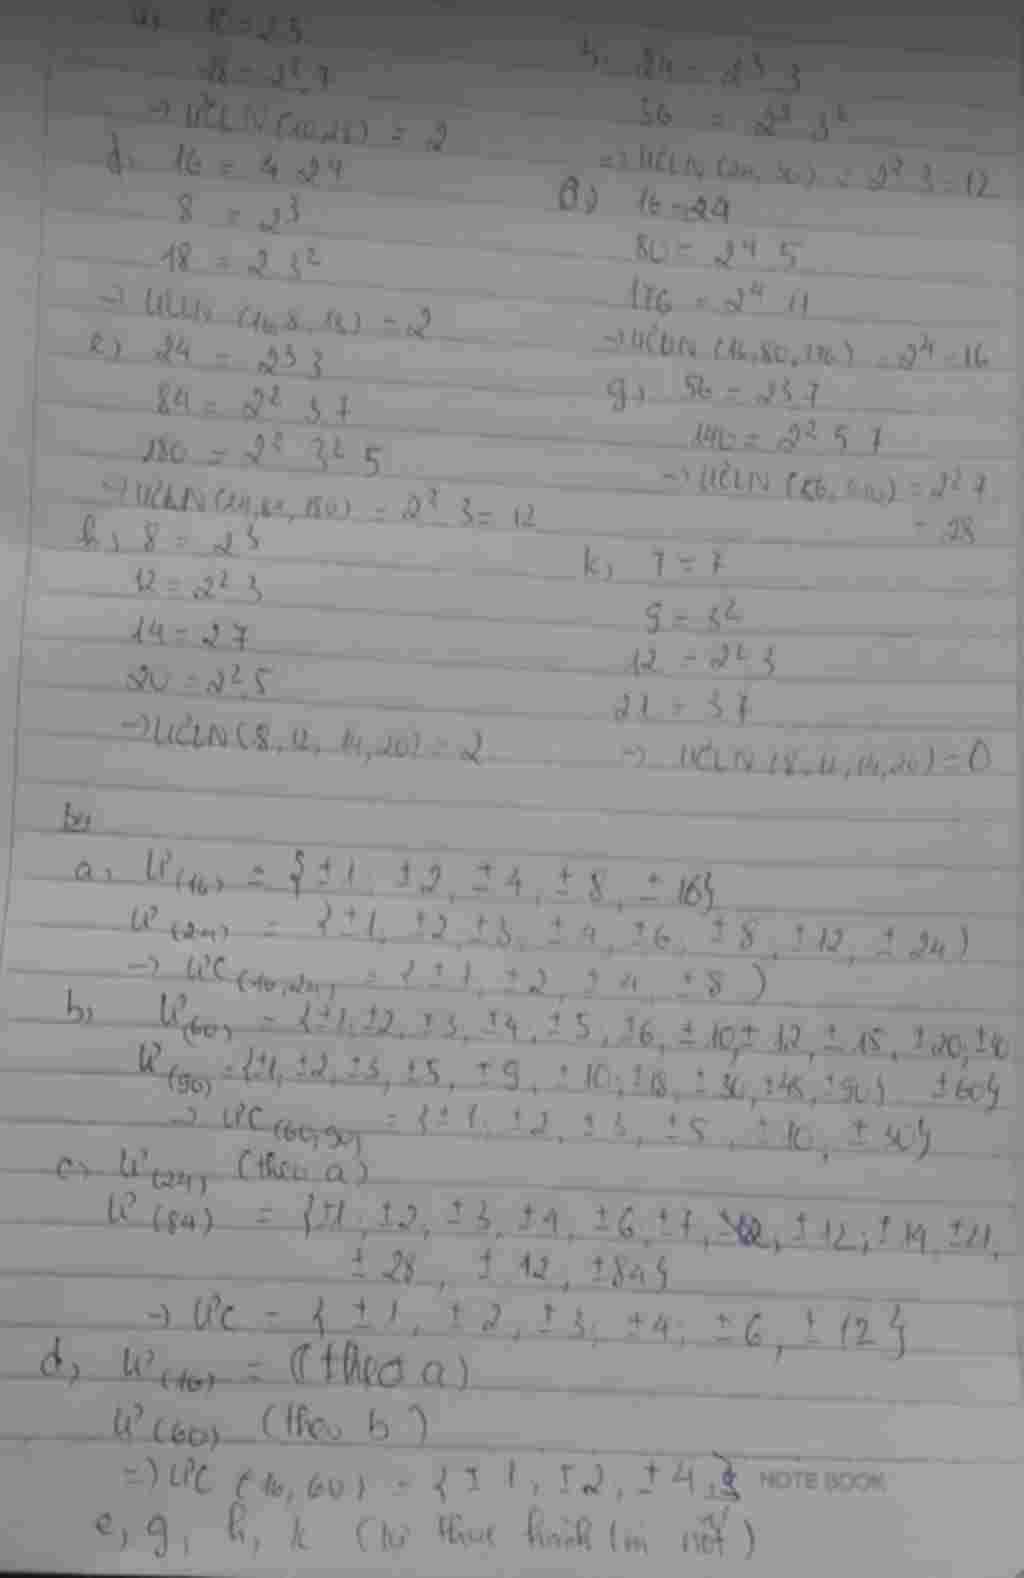 28 = 2² 7
→ ƯCLN (10,28) = 2
d, 16 = 4 2⁴
8 = 2³
18 = 2 3²
→ ƯCLN (16,8,18) = 2
e, 24 = 2³ 3
84 = 2² 3 7
180 = 2² 3² 5
→ ƯCLN (24,84,180) = 2² 3 = 12
h, 8 = 2³
12 = 2² 3
14 = 2 7
20 = 2² 5
→ ƯCLN (8, 12, 14, 20) = 2
b, 24 = 2³ 3
36 = 2² 3²
=> ƯCLN (24, 36) = 2² 3 = 12
16 = 2⁴
80 = 2⁴ 5
176 = 2⁴ 11
→ ƯCLN (16, 80, 176) = 2⁴ = 16
g, 56 = 2³ 7
140 = 2² 5 7
→ ƯCLN (56, 140) = 2² 7
= 28
k, 7 = 7
9 = 3²
12 = 2² 3
21 = 3 7
→ ƯCLN (8, 12, 14, 20) = 0
a, Ư(16) = {±1, ±2, ±4, ±8, ±16}
Ư(24) = {±1, ±2, ±3, ±4, ±6, ±8, ±12, ±24}
→ ƯC(16,24) = {±1, ±2, ±4, ±8}
b, Ư(60) = {±1, ±2, ±3, ±4, ±5, ±6, ±10, ±12, ±15, ±20, ±30
Ư(90) = {±1, ±2, ±3, ±5, ±9, ±10, ±18, ±30, ±45, ±90} ±60}
→ ƯC(60,90) = {±1, ±2, ±3, ±5, ±10, ±30}
c, Ư(24) (theo a)
Ư(84) = {±1, ±2, ±3, ±4, ±6, ±7, ±12, ±14, ±21,
±28, ±12, ±84}
→ ƯC = {±1, ±2, ±3, ±4, ±6, ±12}
d, Ư(16) = (theo a)
Ư(60) (theo b)
=> ƯC (16, 60) = {±1, ±2, ±4}
NOTE BOOK
e, g, h, k (tự thực hành nốt)